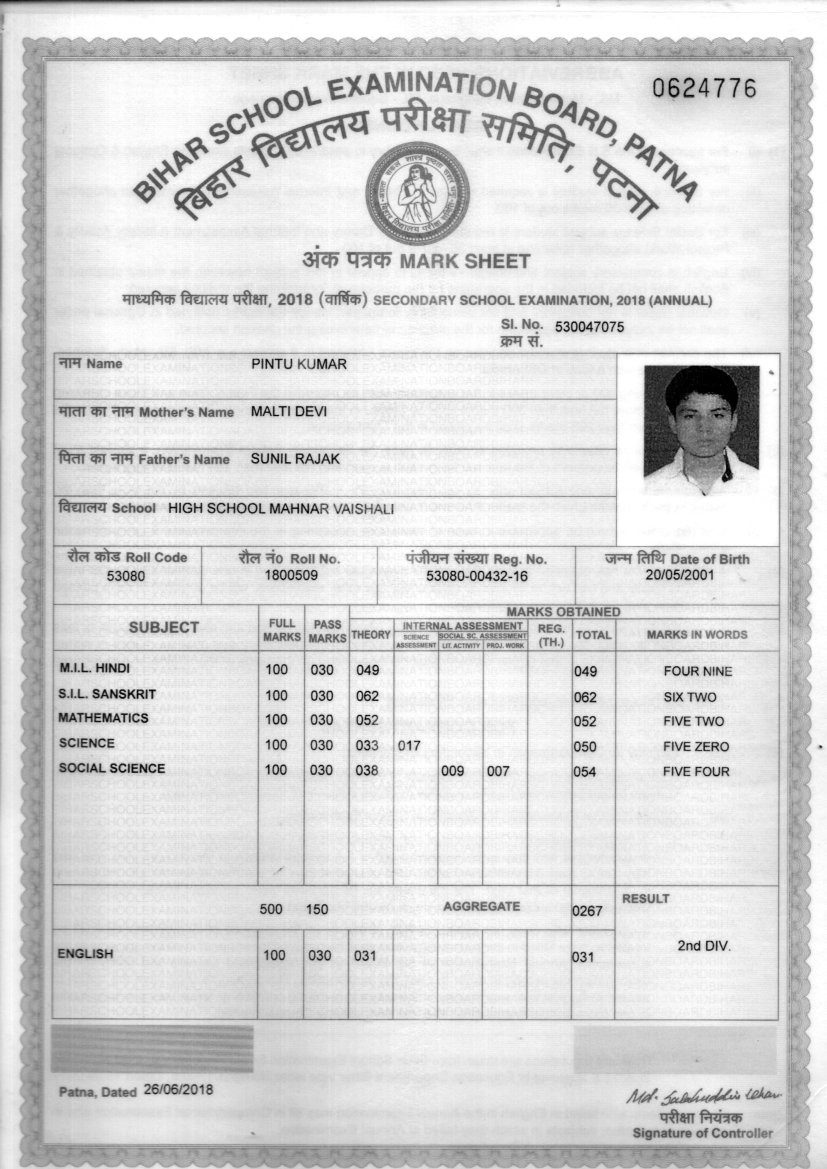 0624776
BIHAR SCHOOL EXAMINATION BOARD, PATNA
बिहार विद्यालय परीक्षा समिति, पटना
अंक पत्रक MARK SHEET
माध्यमिक विद्यालय परीक्षा, 2018 (वार्षिक) SECONDARY SCHOOL EXAMINATION, 2018 (ANNUAL)
Sl. No. 530047075
क्रम सं.
नाम Name PINTU KUMAR
माता का नाम Mother's Name MALTI DEVI
पिता का नाम Father's Name SUNIL RAJAK
विद्यालय School HIGH SCHOOL MAHNAR VAISHALI
रौल कोड Roll Code रौल नं० Roll No. पंजीयन संख्या Reg. No. जन्म तिथि Date of Birth
53080 1800509 53080-00432-16 20/05/2001
SUBJECT FULL MARKS PASS MARKS MARKS OBTAINED
THEORY INTERNAL ASSESSMENT REG. (TH.) TOTAL MARKS IN WORDS
SCIENCE ASSESSMENT SOCIAL SC. ASSESSMENT
LIT. ACTIVITY PROJ. WORK
M.I.L. HINDI 100 030 049 049 FOUR NINE
S.I.L. SANSKRIT 100 030 062 062 SIX TWO
MATHEMATICS 100 030 052 052 FIVE TWO
SCIENCE 100 030 033 017 050 FIVE ZERO
SOCIAL SCIENCE 100 030 038 009 007 054 FIVE FOUR
500 150 AGGREGATE 0267 RESULT
ENGLISH 100 030 031 031 2nd DIV.
Patna, Dated 26/06/2018
Md. Salahuddin Khan
परीक्षा नियंत्रक
Signature of Controller